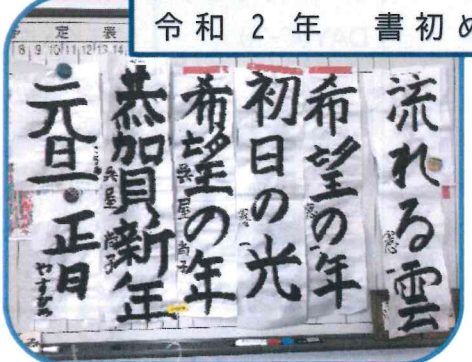 令和2年 書初め
定 表
8 9 10 11 12 13 14
流れる雲
希望の年
初日の光
希望の年
恭賀新年
元旦
正月